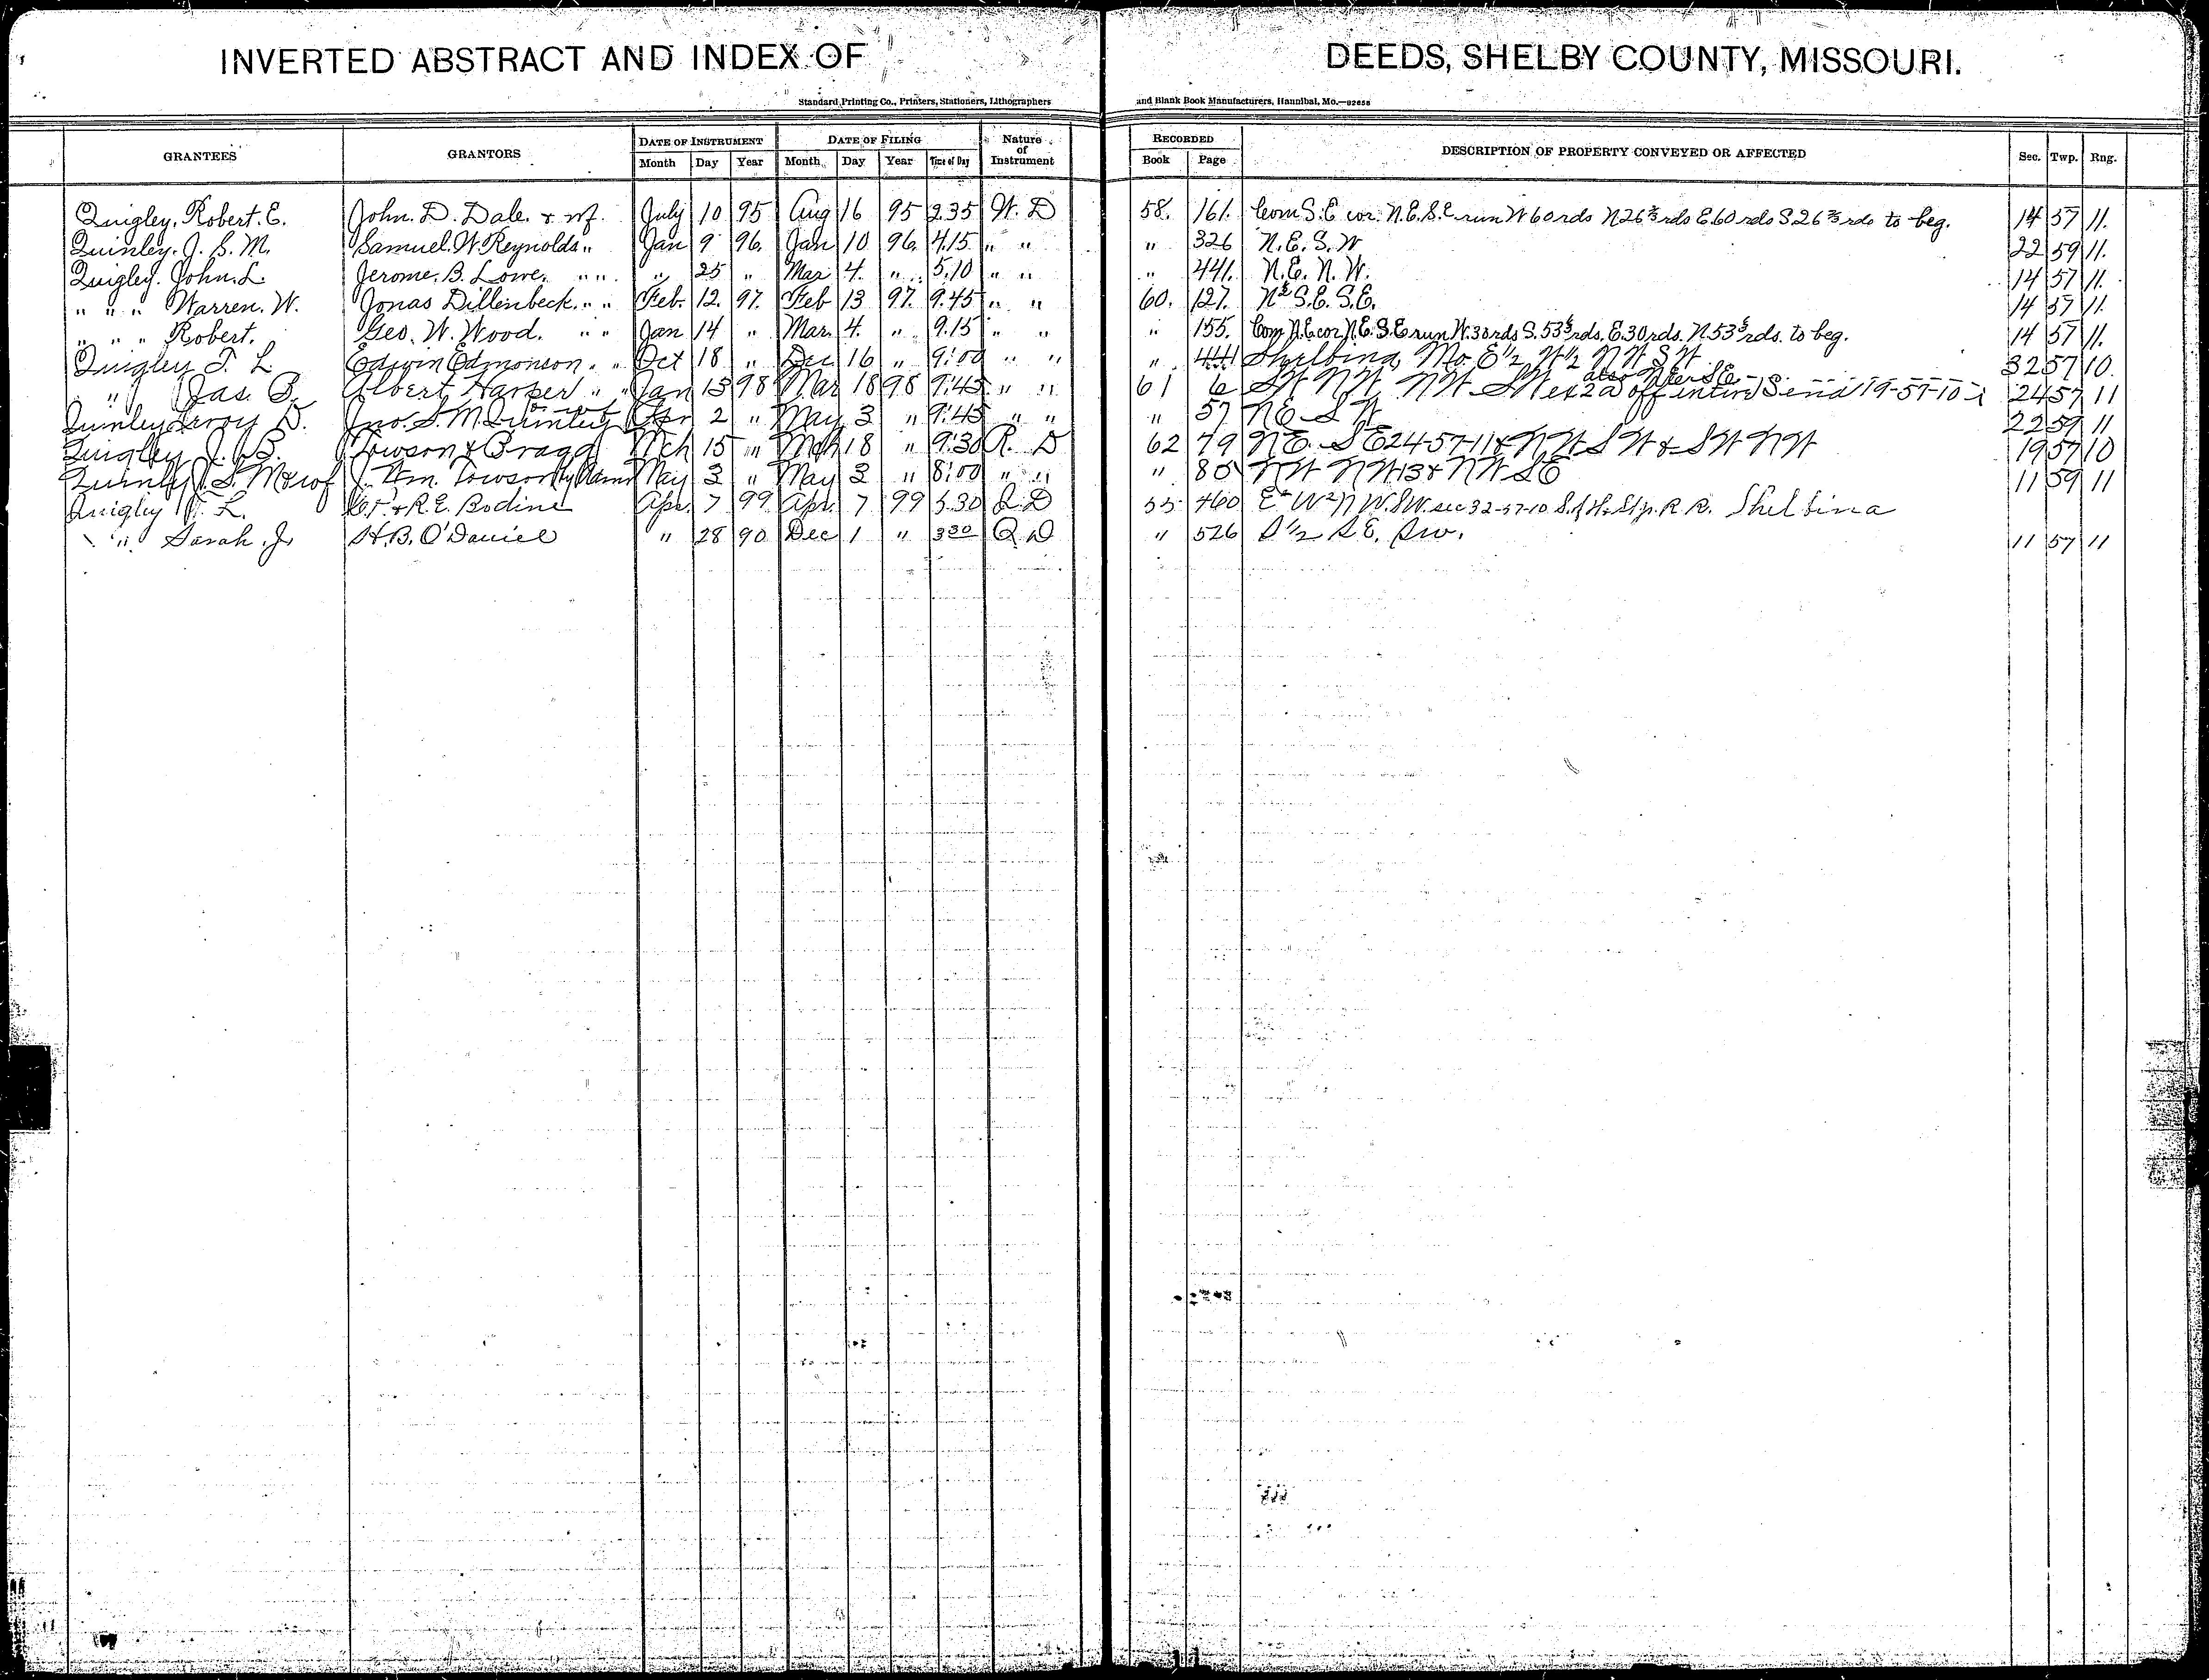 INVERTED ABSTRACT AND INDEX OF DEEDS, SHELBY COUNTY, MISSOURI.
Standard Printing Co., Printers, Stationers, Lithographers and Blank Book Manufacturers, Hannibal, Mo.—92858
GRANTEES GRANTORS DATE OF INSTRUMENT DATE OF FILING Nature of Instrument RECORDED DESCRIPTION OF PROPERTY CONVEYED OR AFFECTED Sec. Twp. Rng.
Month Day Year Month Day Year Time of Day Book Page
Quigley, Robert. E. John. D. Dale. & wf. July 10 95 Aug 16 95 2.35 W. D 58. 161. Com S.E cor. N.E.S.E run W 60 rds N 26 ⅔ rds E. 60 rds S 26 ⅔ rds to beg. 14 57 11.
Quinley. J. S. M. Samuel. W. Reynolds " Jan 9 96. Jan 10 96. 4.15 " " " 326 N. E. S. W 22 59 11.
Quigley. John. L Jerome. B. Lowe. " " " 25 " Mar 4. " 5.10 " " " 441. N. E. N. W. 14 57 11.
" " " Warren. W. Jonas Dillenbeck. " " Feb. 12. 97. Feb 13 97. 9.45 " " 60. 127. N½ S.E. S.E. 14 57 11.
" " " Robert. Geo. W. Wood. " " Jan 14 " Mar. 4. " 9.15 " " " 155. Com N.E cor N.E. S.E run W. 30 rds S. 53 rds, E. 30 rds. N. 53 rds. to beg. 14 57 11.
Quigley L Edwin Edmonson. " " Oct 18 " Dec 16 " 9:00 " " " 444 Shelbina, Mo. E½ W½ N W S W 32 57 10.
" Jas. B. Albert Harper " " Jan 15 98 Mar 18 98 9:45 " " 61 6 S W N W. N W S W ex 2a off entire S end 19-57-10 also N E S E 24 57 11
Quinley Leroy D. Jno. S. M. Quinley Apr 2 " May 3 " 9:45 " " " 57 N E S W 22 59 11
Quigley J. B. Towson & Bragg Mch 15 " Mch 18 " 9:30 R. D 62 79 N E. S E 24-57-11 & N W S W & S W N W 19 57 10
Quinley J. S. M & wf J. Wm. Towson May 3 " May 3 " 8:00 " " " 85 N W N W 13 & N W S E 11 59 11
Quigley L. & R. E. Bodine Apr. 7 99 Apr. 7 99 5.30 Q. D 55 460 E½ W½ N W. SW. sec 32-57-10 S. of H. & St. J. R. R. Shelbina
" Sarah. J. H. B. O'Daniel " 28 90 Dec 1 " 3 30 Q D " 526 S½ S E. Sw. 11 57 11